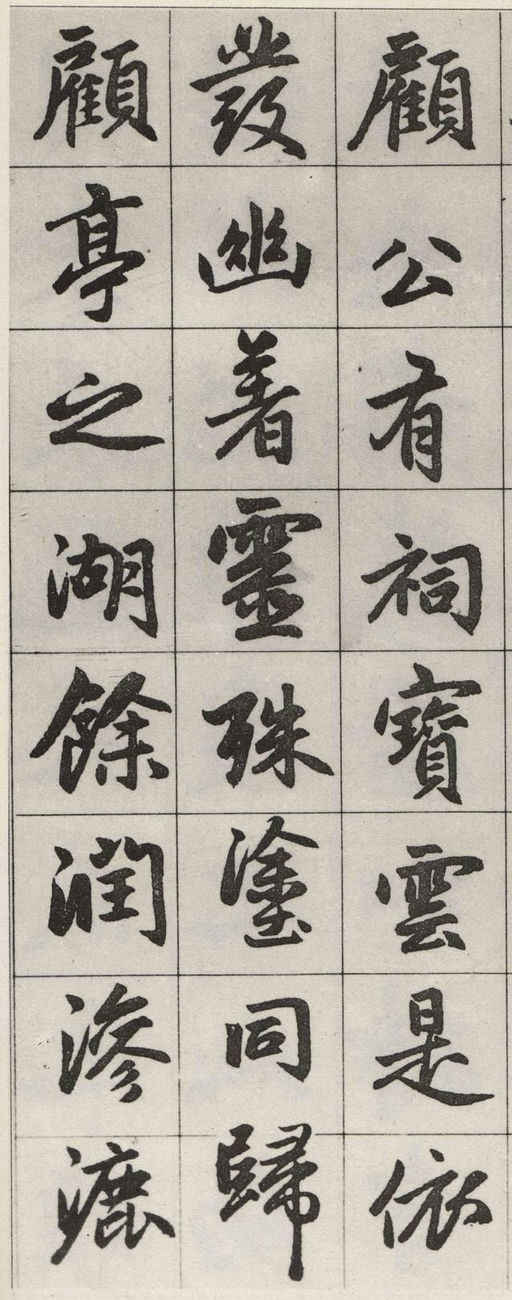 顧公有祠寶雲是依
發幽着靈殊塗同歸
顧亭之湖餘潤滲漉